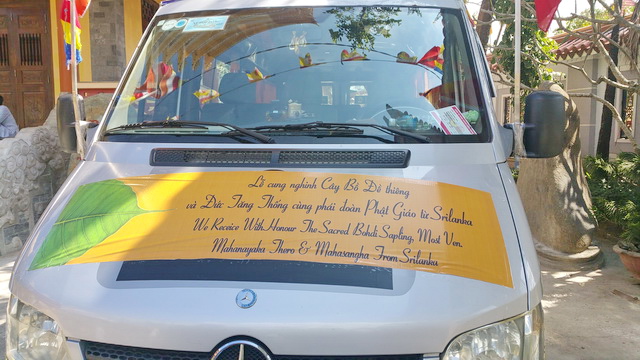 Lễ cung nghinh Cây Bồ Đề thiêng
và Đức Tăng Thống cùng phái đoàn Phật Giáo từ Srilanka
We Receive With Honour The Sacred Bohdi Sapling, Most Ven.
Mahanayaka Thero & Mahasangha From Srilanka